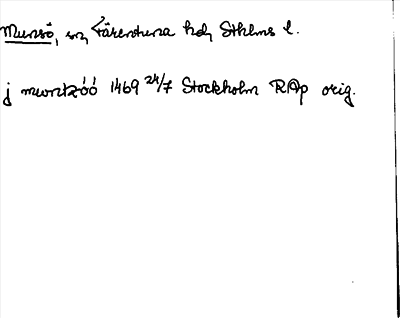 Munsö, sn, Färentuna hd, Sthlms l.
j muntzóó 1469 24/7 Stockholm RAp orig.